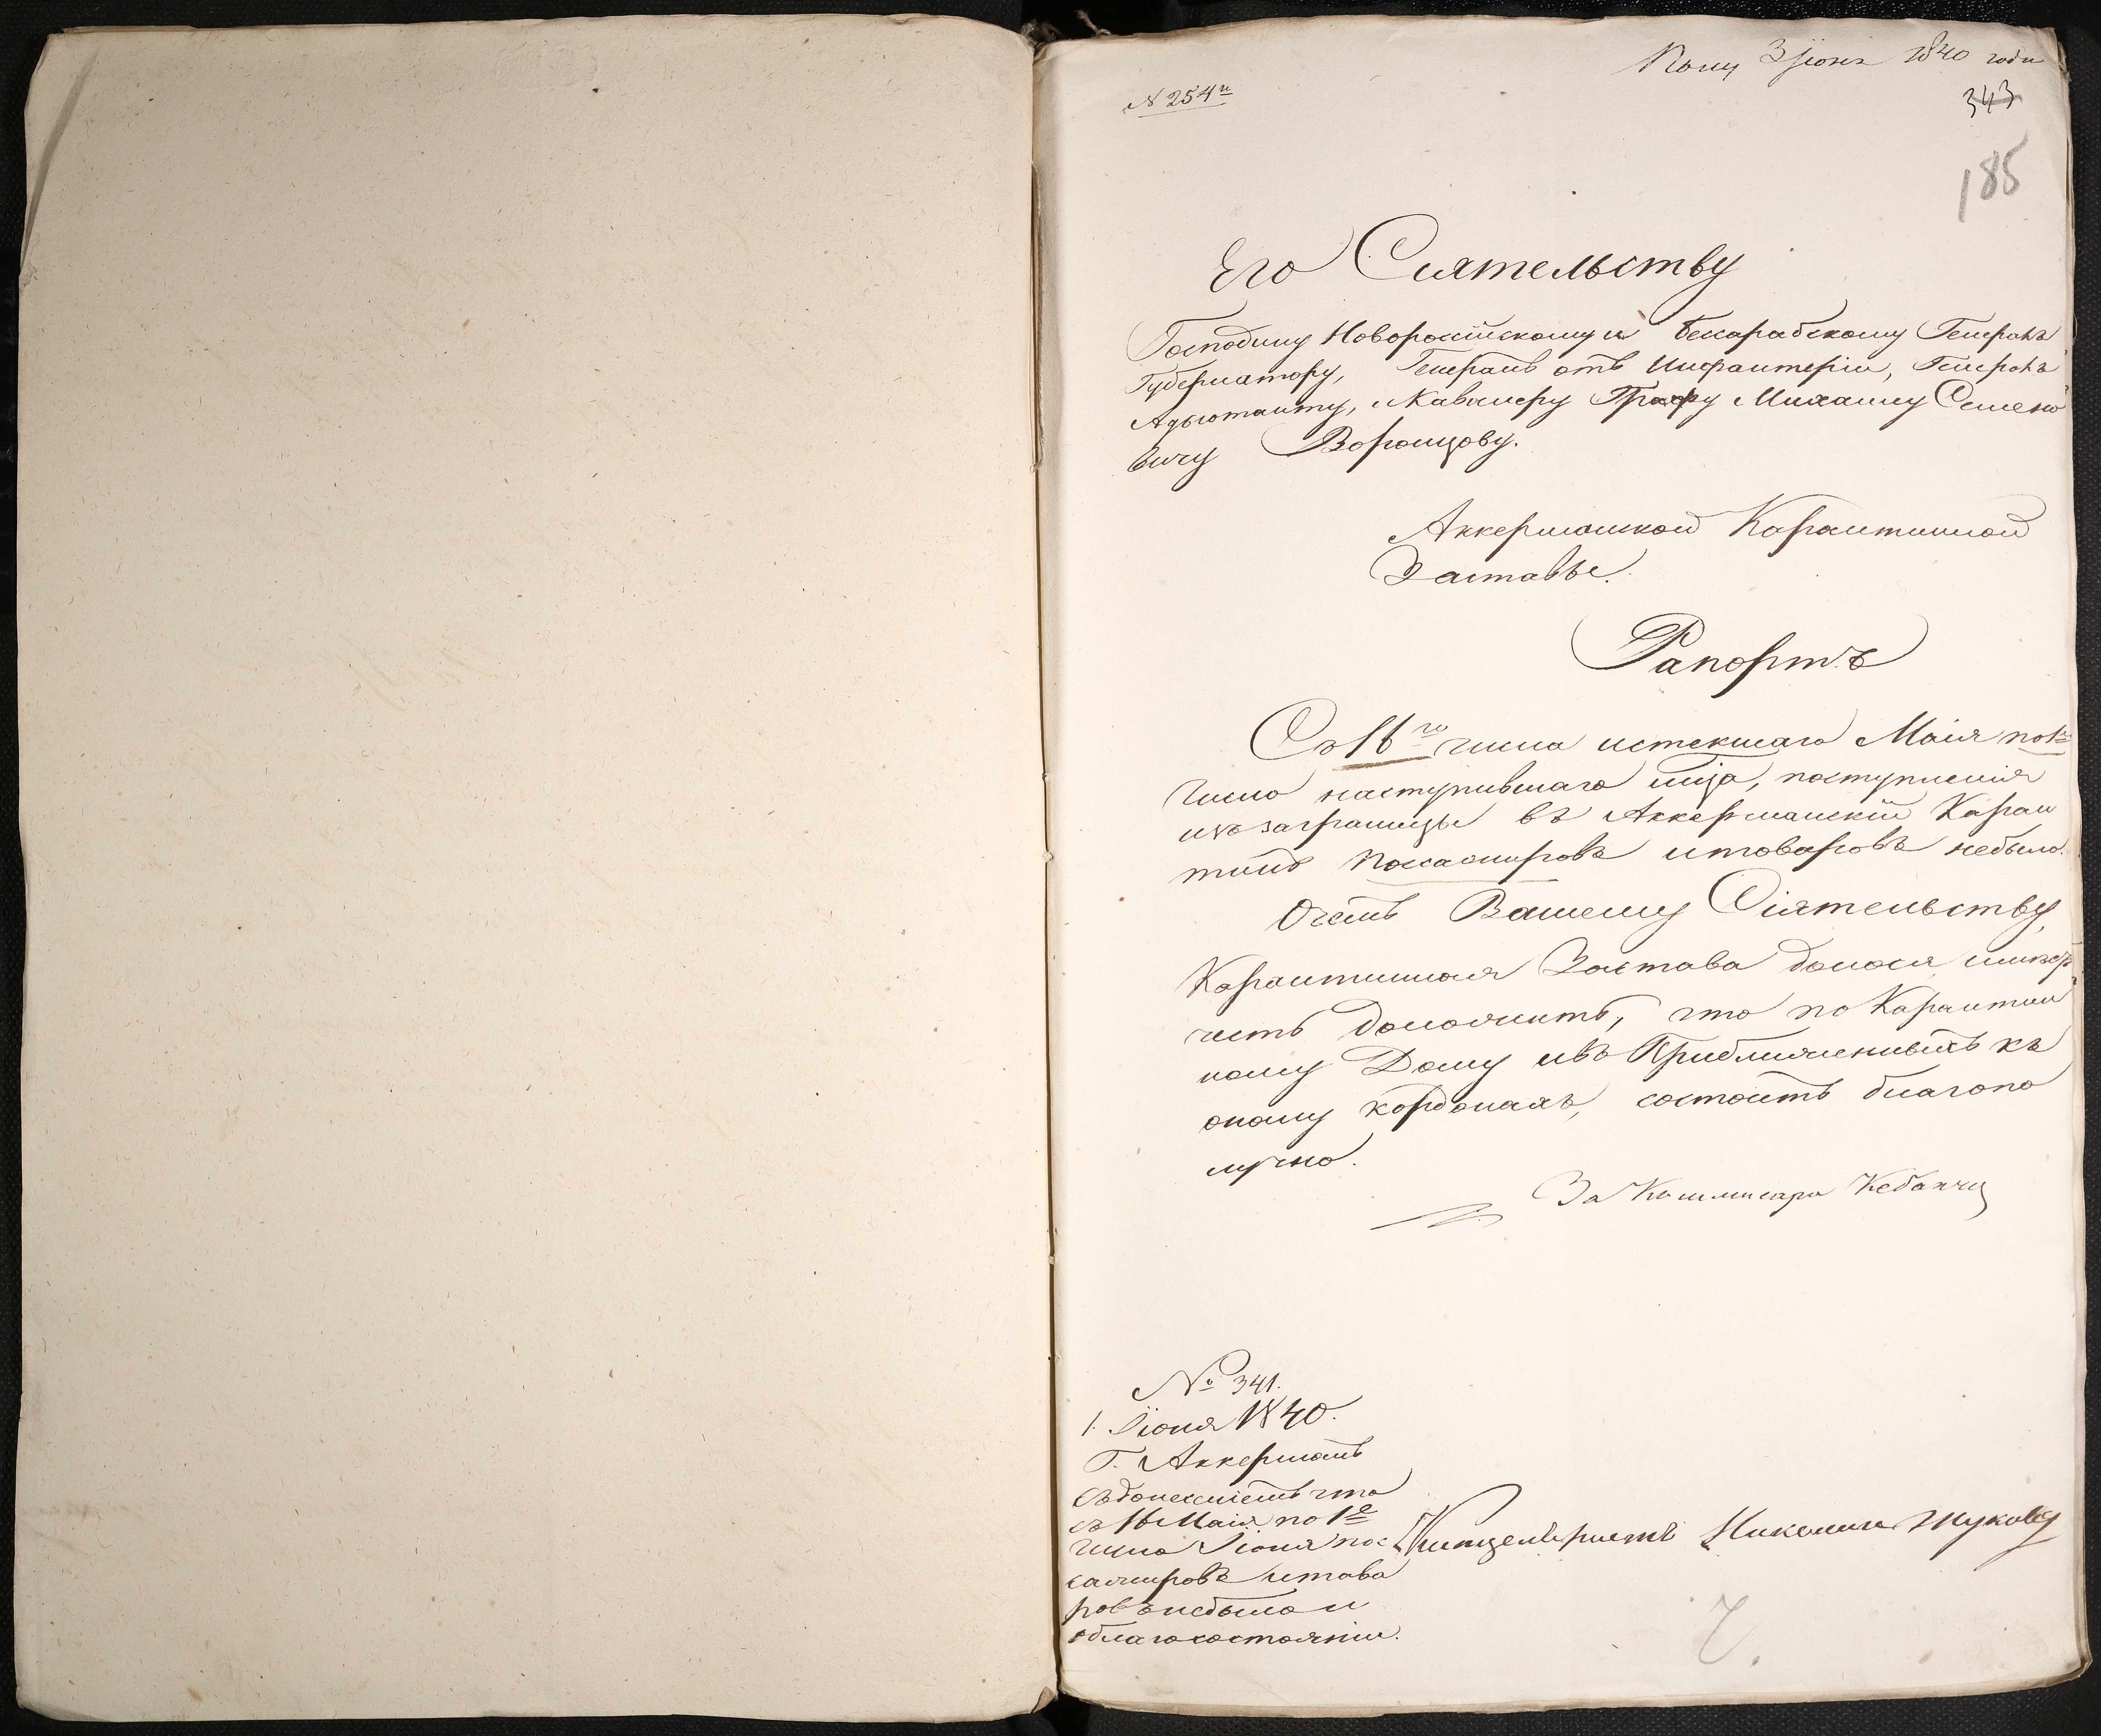 Полу 3 Июня 1840 года
№ 254й
343
185
Его Сиятельству
Господину Новороссійскому и Бессарабскому Генералъ
Губернатору, Генералъ отъ Инфантеріи, Генералъ
Адьютанту, Кавалеру Графу Михаилу Семено
вичу Воронцову.
Аккерманской Карантинной
Заставы.
Рапортъ
Съ 16го числа истекшаго Маія по 1е
число наступившаго мца, поступленія
изъ заграницы въ Аккерманскій Каран
тинъ пассажировъ и товаровъ небыло.
О чемъ Вашему Сіятельству,
Карантинная Застава донося имѣетъ
честь доложить, что по Карантин
ному Дому и въ Приближенныхъ къ
оному кордонахъ, состоитъ благопо
лучно.
За Коммисара
№ 341.
1. Іюня 1840.
Г. Аккерманъ
Съ донесеніемъ что
съ 16 Маія по 1е
число Іюня пас
сажировъ и това
ровъ небыло и
о благосостояніи.
Канцеляристъ Николай Жуковъ